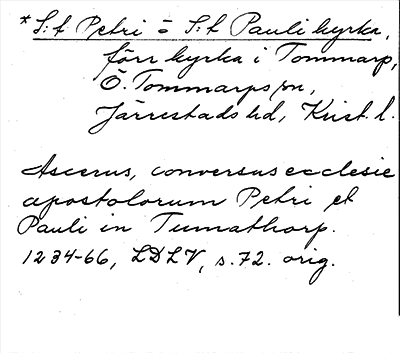 *S:t Petri o S:t Pauli kyrka,
förr kyrka i Tommarp,
Ö. Tommarps sn,
Järrestads hd, Krist. l.
Ascerus, conversus ecclesie
apostolorum Petri et
Pauli in Tumathorp.
1234-66, LDLV, s. 72. orig.